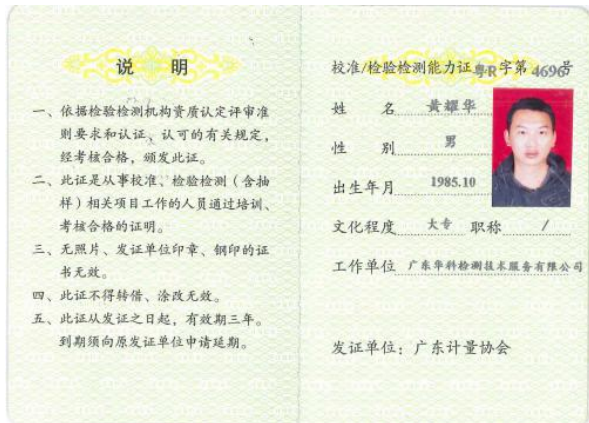 说 明
一、依据检验检测机构资质认定评审准
则要求和认证、认可的有关规定，
经考核合格，颁发此证。
二、此证是从事校准、检验检测（含抽
样）相关项目工作的人员通过培训、
考核合格的证明。
三、无照片、发证单位印章、钢印的证
书无效。
四、此证不得转借、涂改无效。
五、此证从发证之日起，有效期三年。
到期须向原发证单位申请延期。
校准/检验检测能力证粤R字第4696号
姓 名 黄耀华
性 别 男
出生年月 1985.10
文化程度 大专 职称 /
工作单位 广东华科检测技术服务有限公司
发证单位：广东计量协会